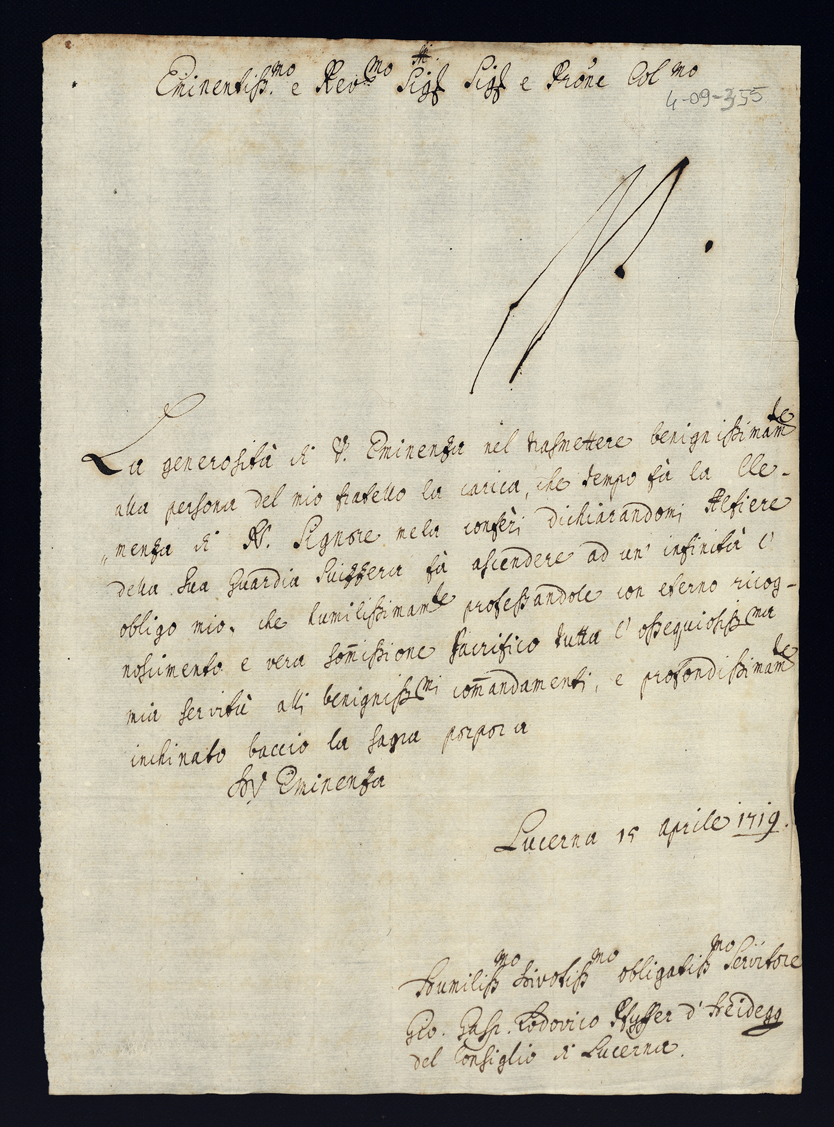 Eminentiss.mo e Rev.mo Sigr Sigr e Prōne Col mo
4-09-355
La generosità di V. Eminenza nel trasmettere benignissimamte
alla persona del mio fratello la carica, che tempo fà la Cle-
menza di N. Signore mela conferì dichiarandomi Alfiere
della sua Guardia Suizzera fà ascendere ad un' infinità l'
obligo mio. che humilissimamte professandole con eterno ricog-
noscimento e vera som̄issione sacrifico tutta l' ossequiosissma
mia servitù alli benignissmi com̄andamenti, e profondissimamte
inchinato baccio la sagra porpora
D V Eminenza
Lucerna 15 Aprile 1719.
Humilissmo Divotissmo obligatissmo Servitore
Gio. Gasp. Lodovico Pfyffer d' Heidegg
del Consiglio di Lucerna.